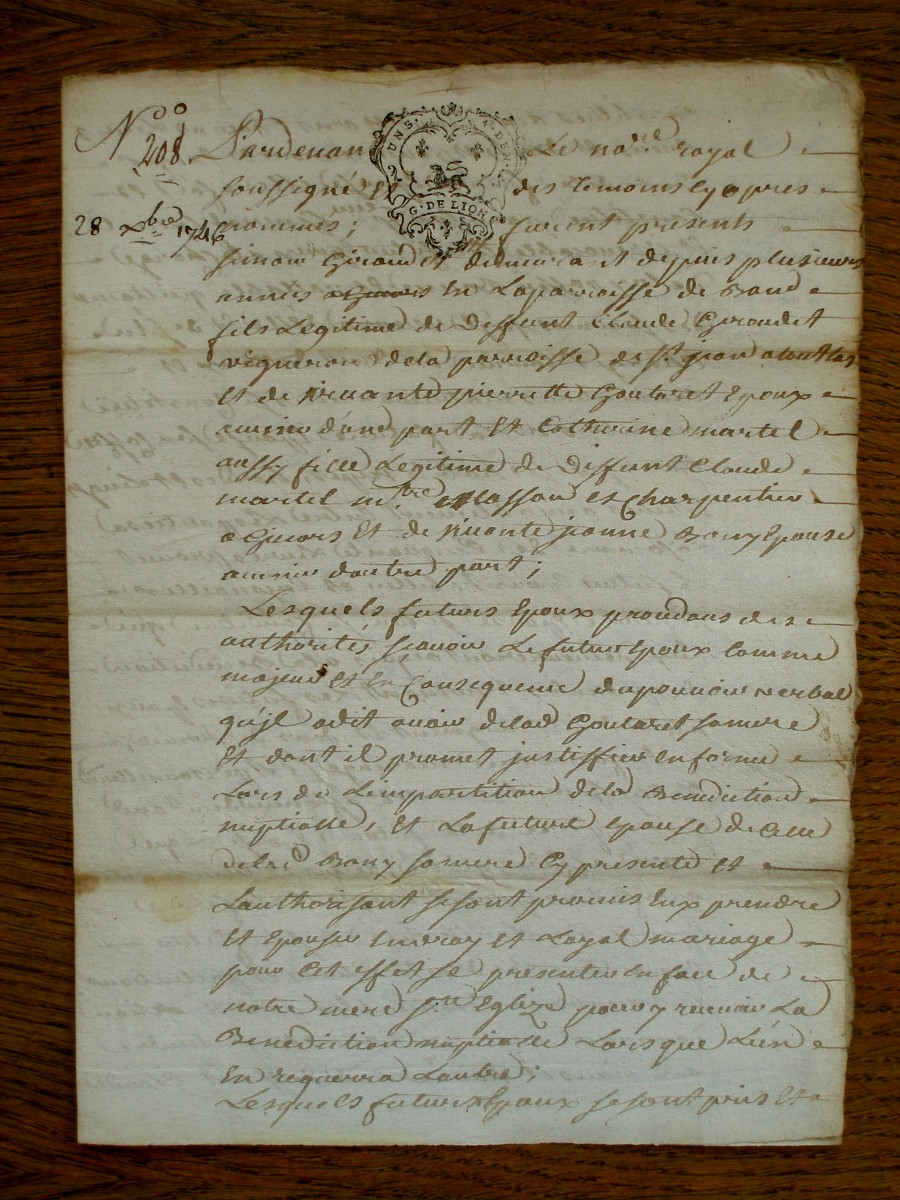 N.o 208.
28 xbre 1746
UNS. DEN.
G. DE LION
Pardevant Le no.re royal
soussigné Et des temoins Cy apres
nommés; furent presents
simon Giraudet demeurant depuis plusieurs
années a Givors En Laparroisse de
fils Legitime de Deffunt Claude Giraudet
vigneron dela parroisse de st. jean atoutlas
Et de vivante pierrette Goutaret Epoux
avenir d'une part Et Catherine martel
aussy fille Legitime de Deffunt Claude
martel m.tre Masson et Charpentier
a Givors Et de vivante jeanne Bony Epouse
avenir dautre part;
Lesquels futurs Epoux procedans des
authorités scavoir Le futur Epoux Comme
majeur Et En Consequence dupouvoir verbal
qu'jl adit avoir delad Goutaret samere
Et dont il promet justiffier enforme
Lors de Limpartition dela Benediction
nuptialle, Et Lafuture Epouse de Celle
delad Bony samere Cy presente Et
Lauthorisant sesont promis Eux prendre
Et Epouser Envray Et Loyal mariage
pour Cet Effet se presenter en face de
notre mere s.te Eglize pour y recevoir La
Benediction nuptialle Lorsque L'un
En requerra Lautre;
Lesquels futurs Epoux sesont pris Et